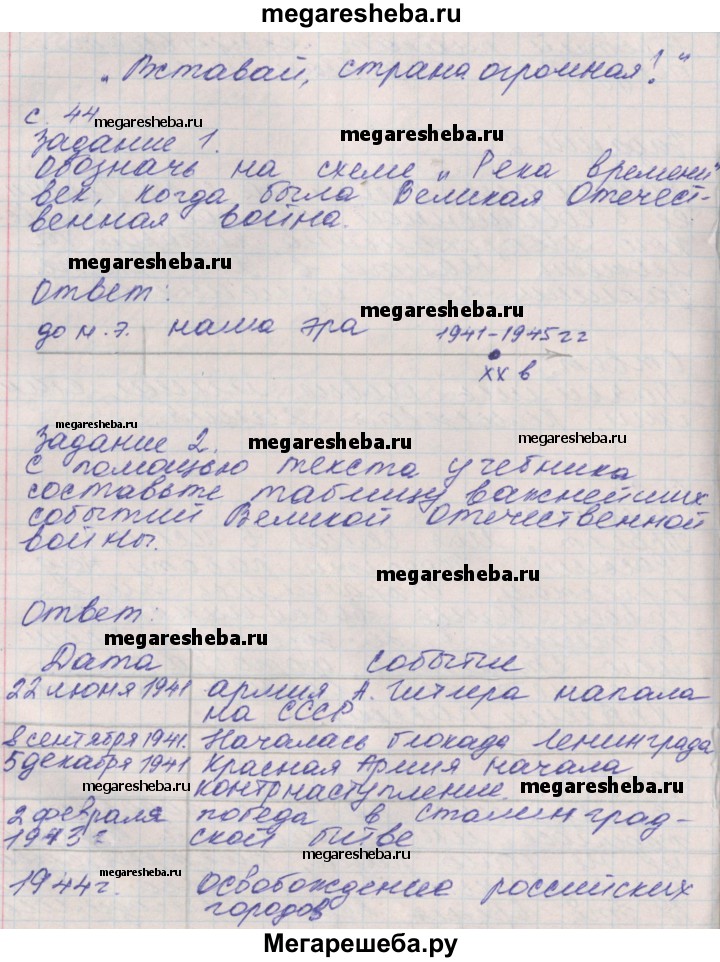 megaresheba.ru
„Вставай, страна огромная!"
с. 44
megaresheba.ru
Задание 1.
megaresheba.ru
Обозначь на схеме „Река времени"
век, когда была Великая Отечест-
венная война.
megaresheba.ru
Ответ:
megaresheba.ru
до н.э. наша эра 1941-1945 гг
XX в
megaresheba.ru
Задание 2.
megaresheba.ru
megaresheba.ru
С помощью текста учебника
составьте таблицу важнейших
событий Великой Отечественной
войны.
megaresheba.ru
Ответ:
megaresheba.ru
Дата событие
22 июня 1941 армия А. Гитлера напала
на СССР
8 сентября 1941. Началась блокада Ленинграда
5 декабря 1941 Красная Армия начала
контрнаступление.
megaresheba.ru
megaresheba.ru
2 февраля победа в сталинград-
1943 г ской битве
megaresheba.ru
megaresheba.ru
1944 г. Освобождение российских
городов
Мегарешеба.ру